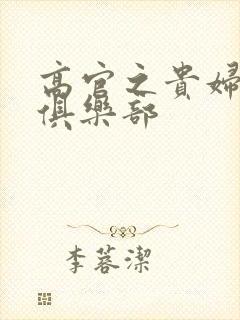 高官之貴婦
俱樂部
李蓉潔